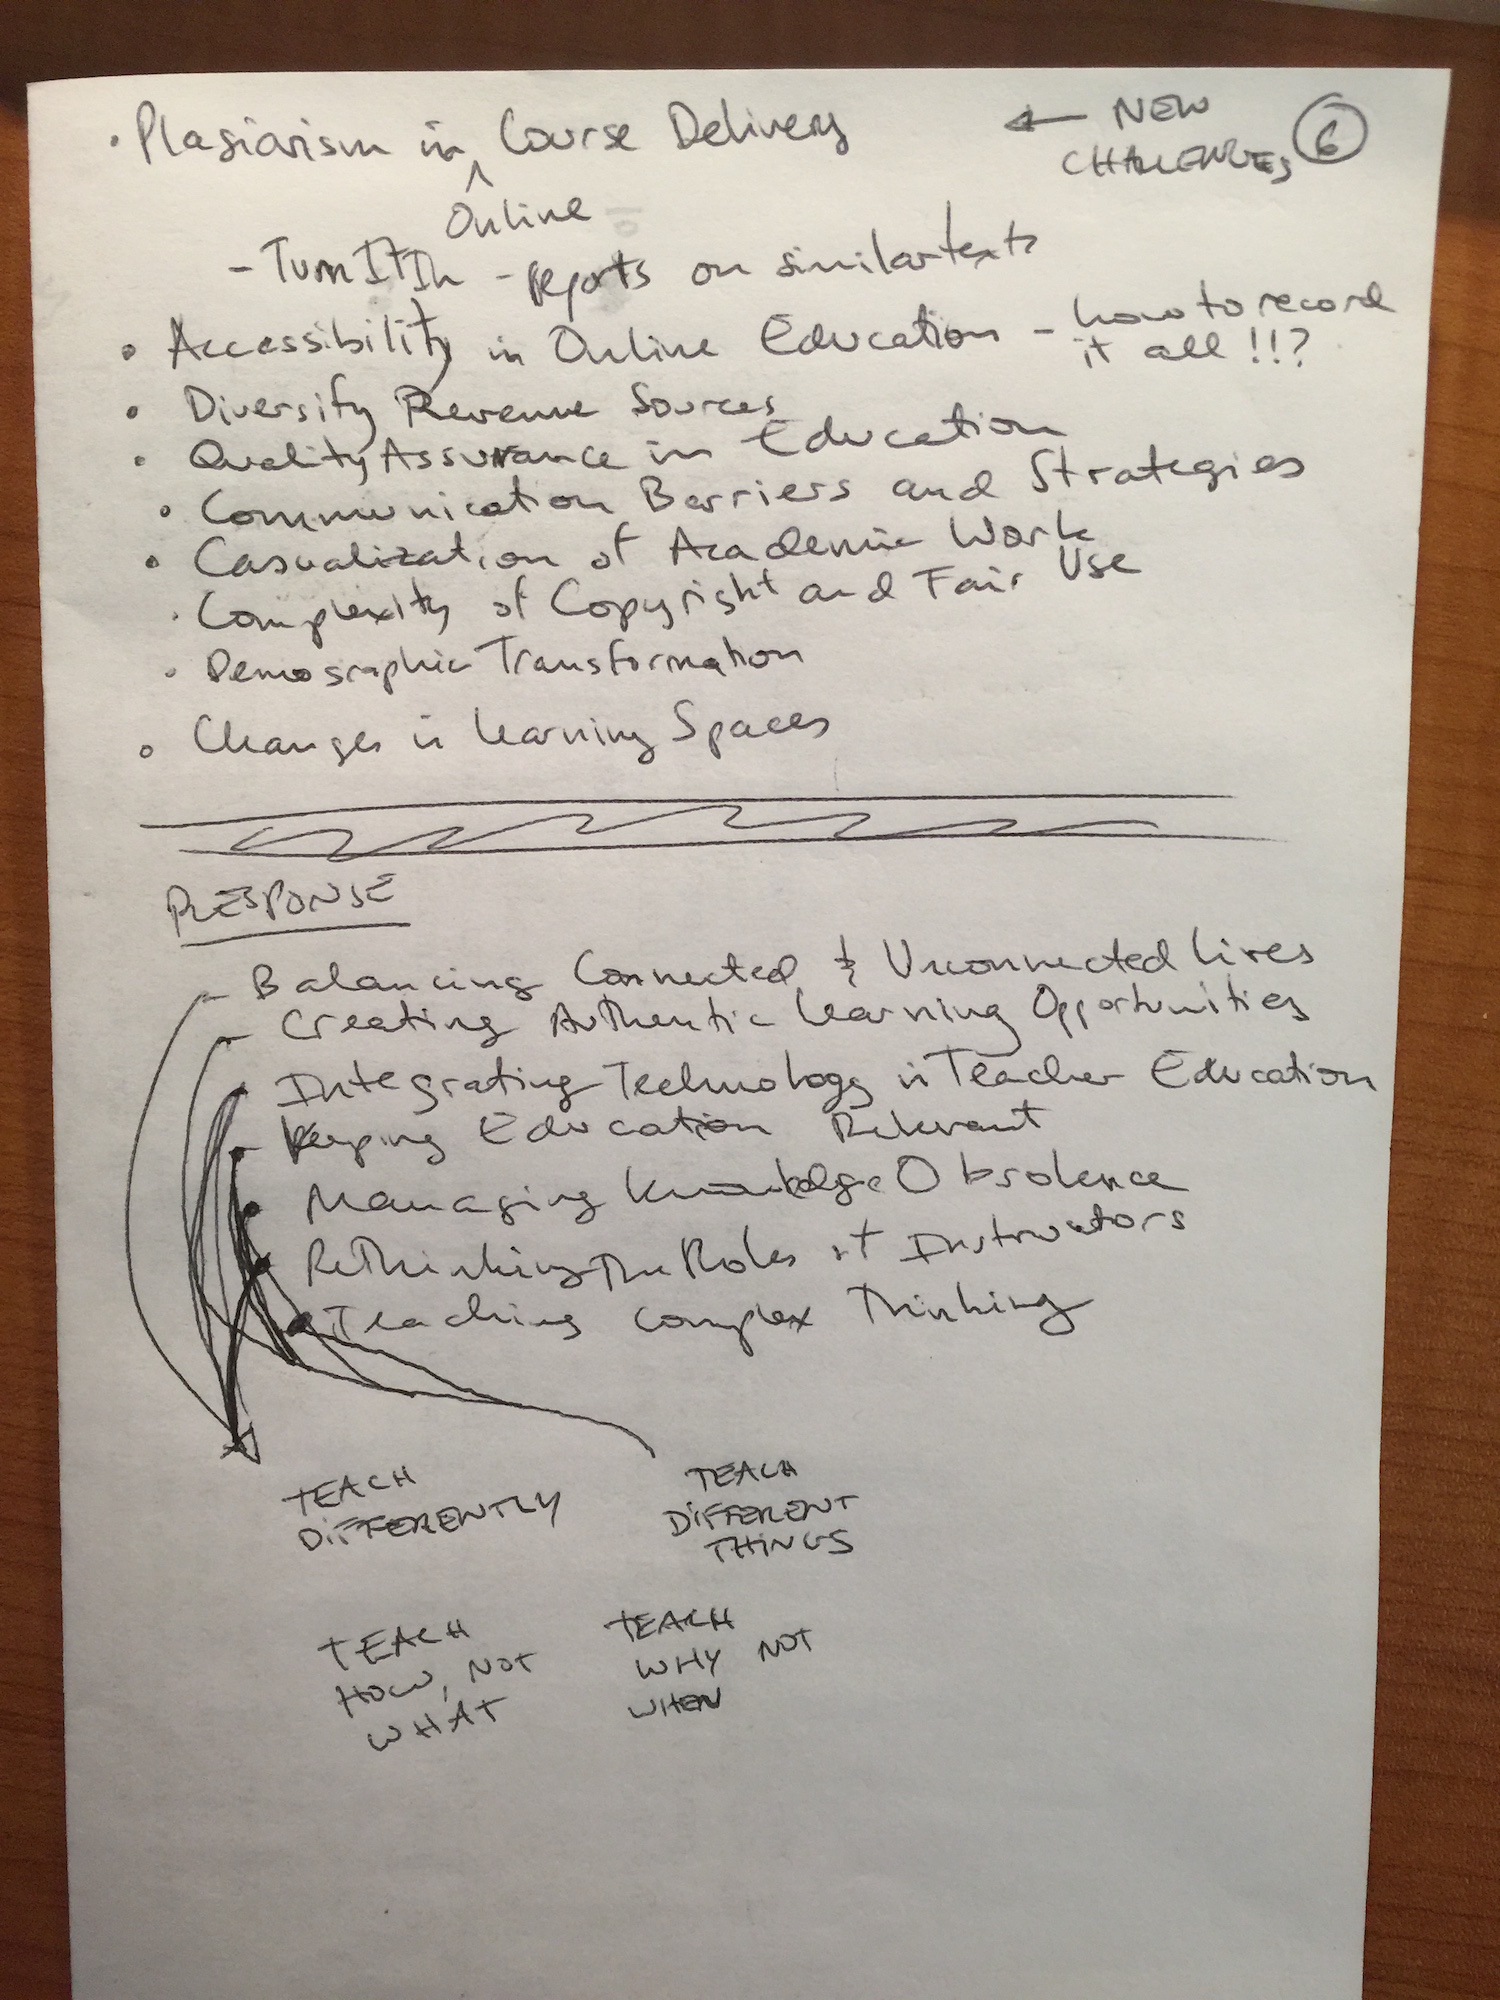 • Plagiarism in Course Delivery
← NEW
CHALLENGES
6
^
Online
- TurnItIn - reports on similar texts
• Accessibility in Online Education - how to record
it all !!?
• Diversify Revenue Sources
• Quality Assurance in Education
• Communication Barriers and Strategies
• Casualization of Academic Work
• Complexity of Copyright and Fair Use
• Demographic Transformation
• Changes in Learning Spaces
RESPONSE
- Balancing Connected & Unconnected Lives
- Creating Authentic Learning Opportunities
- Integrating Technology in Teacher Education
- Keeping Education Relevant
• Managing Knowledge Obsolence
• Rethinking the Roles of Instructors
• Teaching Complex Thinking
TEACH
DIFFERENTLY
TEACH
DIFFERENT
THINGS
TEACH
HOW, NOT
WHAT
TEACH
WHY NOT
WHEN